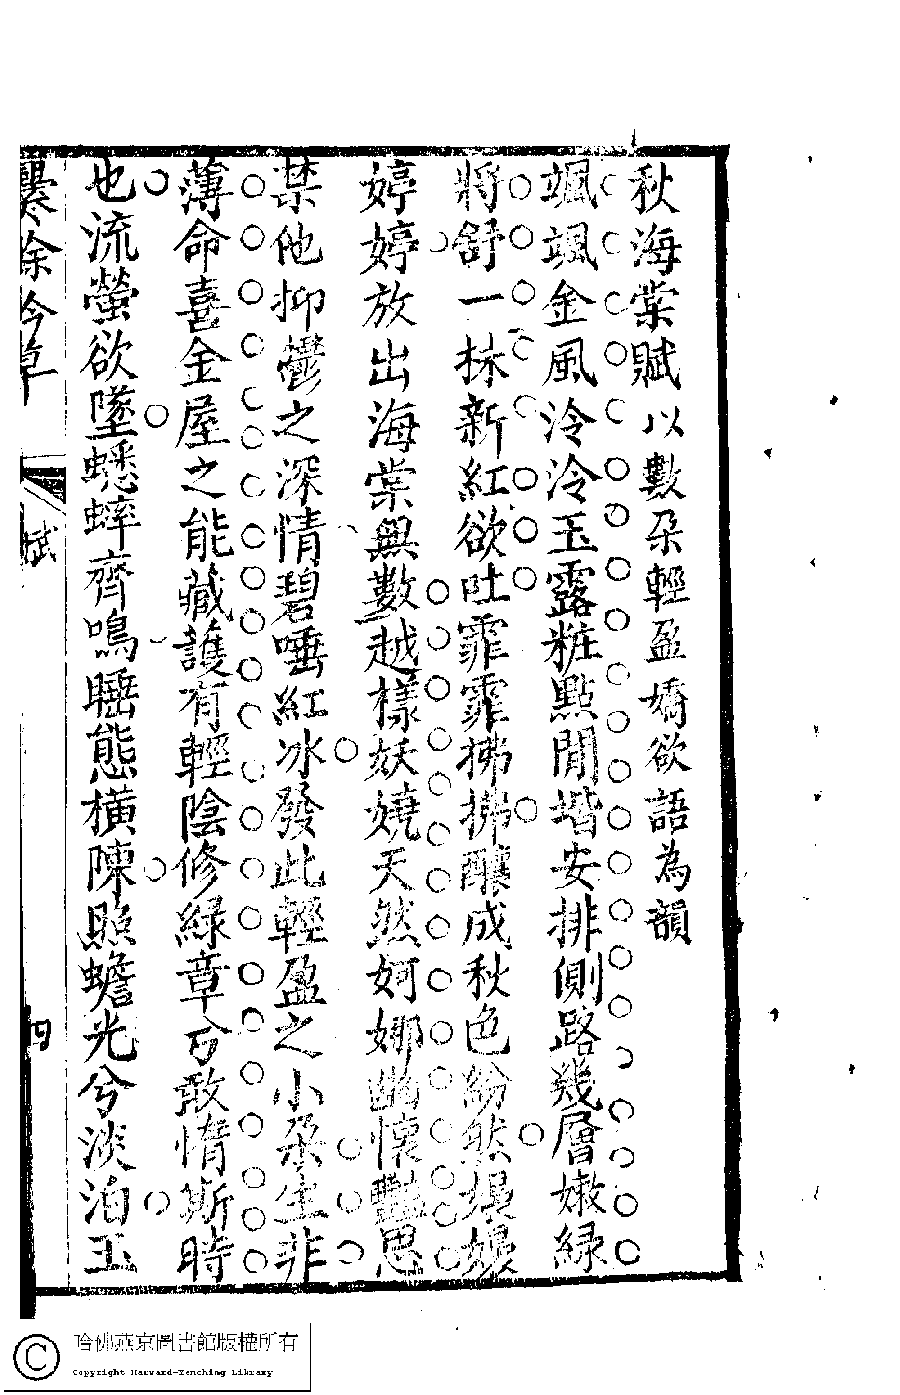 秋海棠賦以數朶輕盈嬌欲語為韻
颯颯金風泠泠玉露粧點閒堦安排側路幾層嫩綠
將舒一抹新紅欲吐霏霏拂拂釀成秋色紛然媞媞
婷婷放出海棠無數越樣妖嬈天然婀娜幽懷豔思
禁他抑鬱之深情碧唾紅冰發此輕盈之小朶生非
薄命喜金屋之能藏護有輕陰修綠章兮敢惰斯時
也流螢欲墜蟋蟀齊鳴睡態橫陳照蟾光兮淡泊玉
餘吟草
賦
四
哈佛燕京圖書館版權所有
Copyright Harvard-Yenching Library